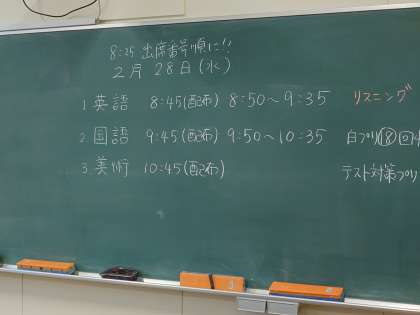 8:25 出席番号順に!!
2月 28日(水)
1. 英語 8:45(配布) 8:50〜9:35 リスニング
2. 国語 9:45(配布) 9:50〜10:35 白プリ⑱
3. 美術 10:45(配布) テスト対策プリ